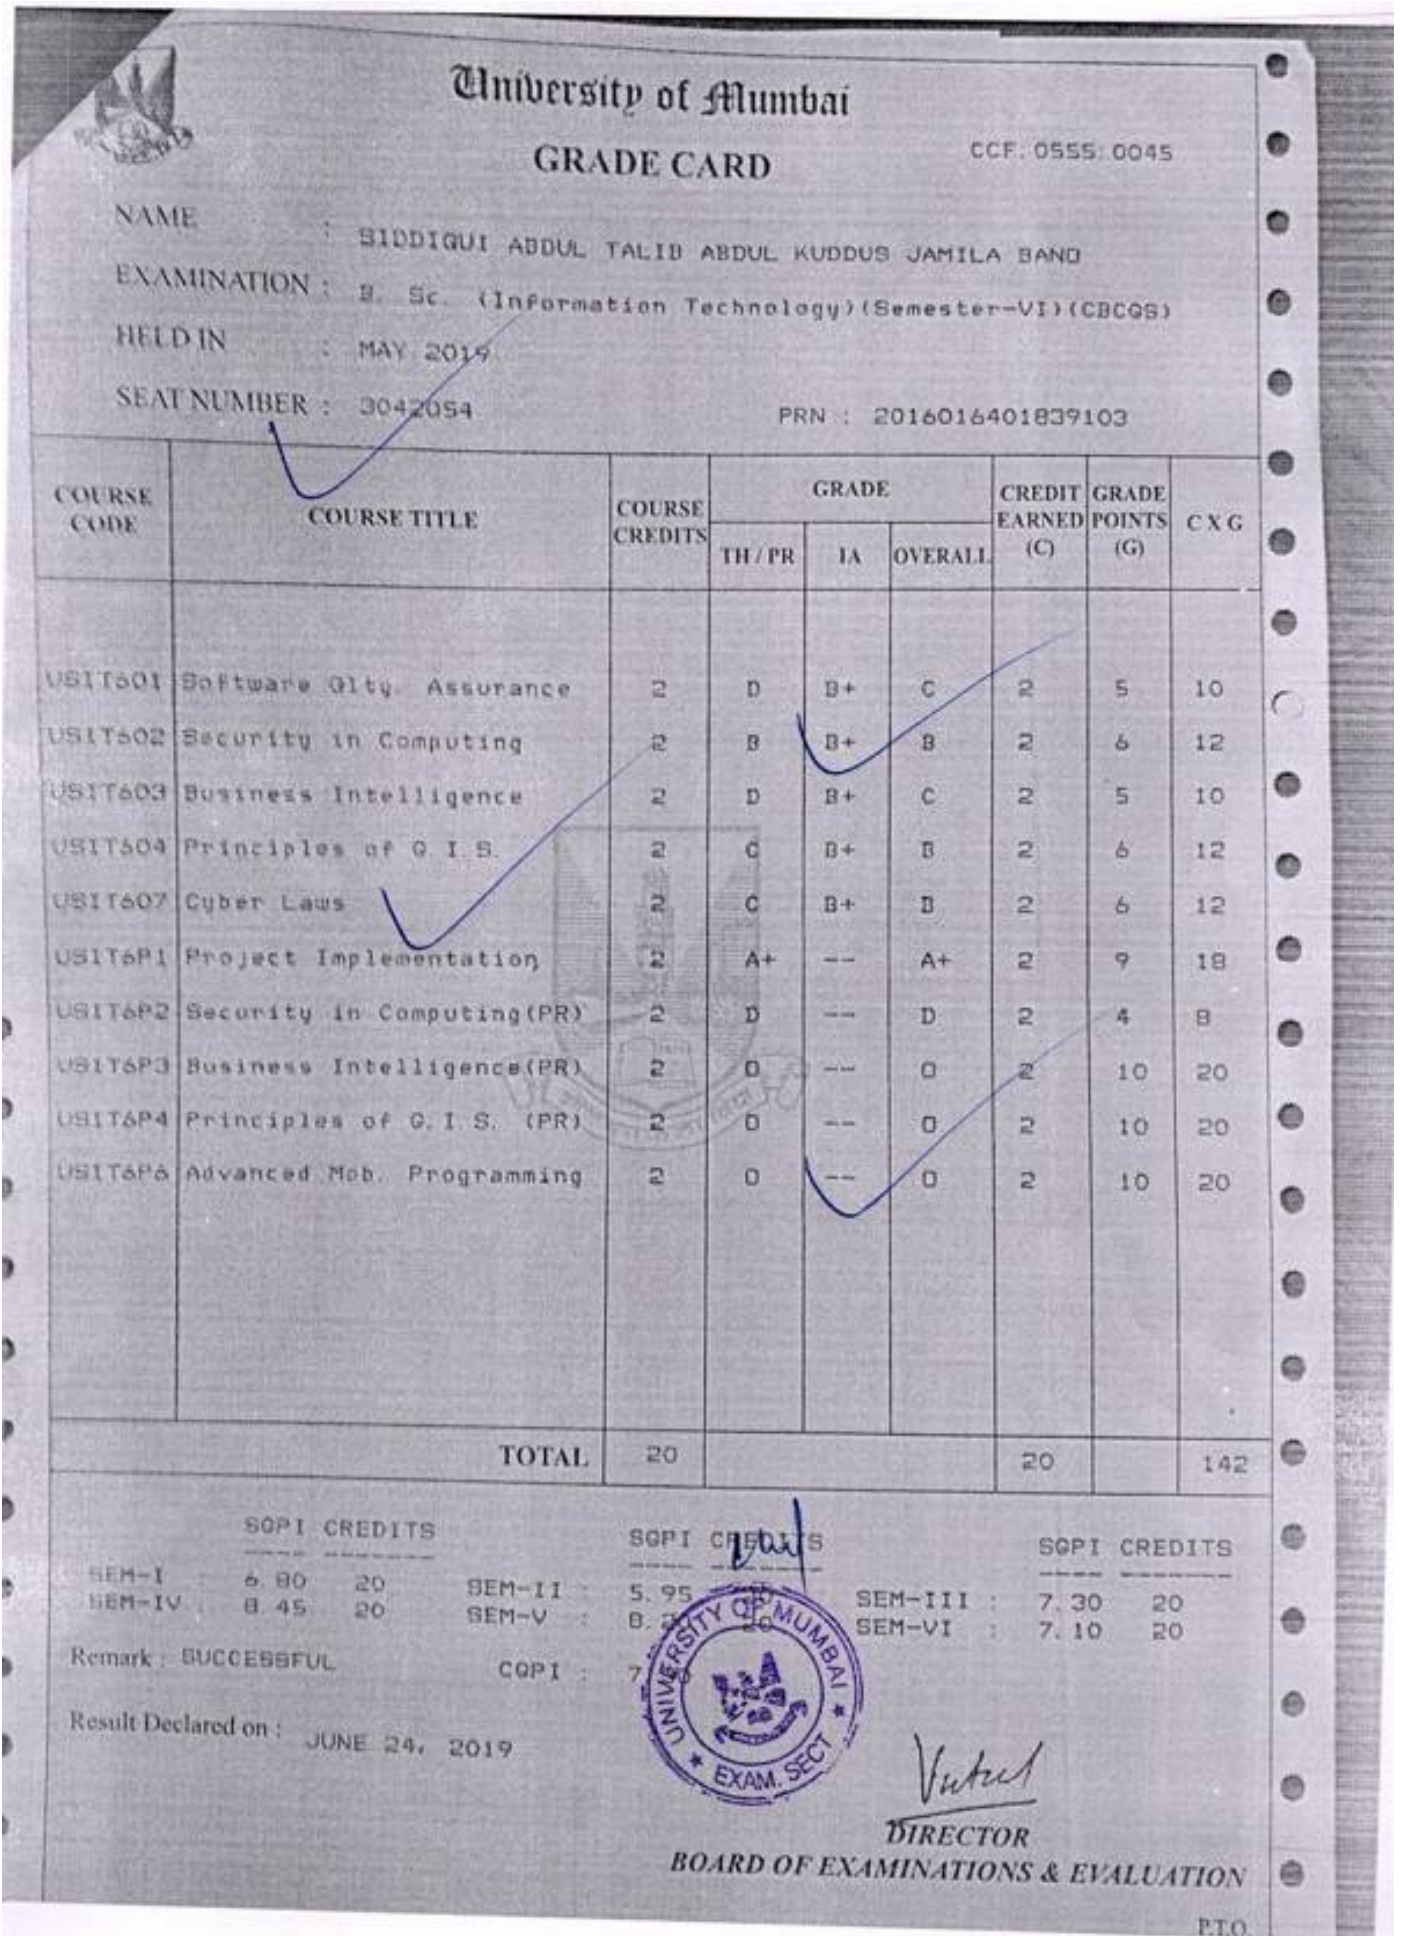 University of Mumbai
GRADE CARD
CCF. 0555: 0045
NAME : SIDDIQUI ABDUL TALIB ABDUL KUDDUS JAMILA BANO
EXAMINATION : B. Sc. (Information Technology)(Semester-VI)(CBCGS)
HELD IN : MAY 2019
SEAT NUMBER : 3042054 PRN : 2016016401839103
COURSE CODE COURSE TITLE COURSE CREDITS GRADE CREDIT EARNED (C) GRADE POINTS (G) C X G
TH / PR IA OVERALL
USIT601 Software Qlty. Assurance 2 D B+ C 2 5 10
USIT602 Security in Computing 2 B B+ B 2 6 12
USIT603 Business Intelligence 2 D B+ C 2 5 10
USIT604 Principles of G.I.S. 2 C B+ B 2 6 12
USIT607 Cyber Laws 2 C B+ B 2 6 12
USIT6P1 Project Implementation 2 A+ -- A+ 2 9 18
USIT6P2 Security in Computing(PR) 2 D -- D 2 4 8
USIT6P3 Business Intelligence(PR) 2 O -- O 2 10 20
USIT6P4 Principles of G.I.S. (PR) 2 O -- O 2 10 20
USIT6P6 Advanced Mob. Programming 2 O -- O 2 10 20
TOTAL 20 20 142
SGPI CREDITS SGPI CREDITS SGPI CREDITS
SEM-I : 6.80 20 SEM-II : 5.95 SEM-III : 7.30 20
SEM-IV : 8.45 20 SEM-V : 20 SEM-VI : 7.10 20
Remark : SUCCESSFUL CGPI :
UNIVERSITY OF MUMBAI
EXAM. SECT
Result Declared on : JUNE 24, 2019
DIRECTOR
BOARD OF EXAMINATIONS & EVALUATION
P.T.O.